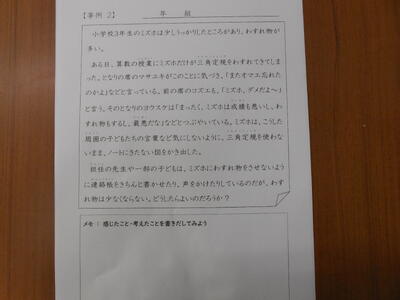 【事例 2】　　　年　組
小学校3年生のミズホは少しうっかりしたところがあり、わすれ物が
多い。
ある日、算数の授業にミズホだけが三角定規をわすれてきてしま
った。となりの席のマサユキがこのことに気づき、「またオマエ忘れた
のかよ」などと言っている。前の席のコズエも、「ミズホ、ダメだよ〜」
と言う。そのとなりのヨウスケは「まったく、ミズホは成績も悪いし、わ
すれ物もするし、最悪だな」などとつぶやいている。ミズホは、こうした
周囲の子どもたちの言葉など気にしないように、三角定規を使わな
いまま、ノートにきたない図をかき出した。
担任の先生や一部の子どもは、ミズホにわすれ物をさせないよう
に連絡帳をきちんと書かせたり、声をかけたりしているのだが、わす
れ物は少なくならない。どうしたらよいのだろうか？
メモ：感じたこと・考えたことを書きだしてみよう